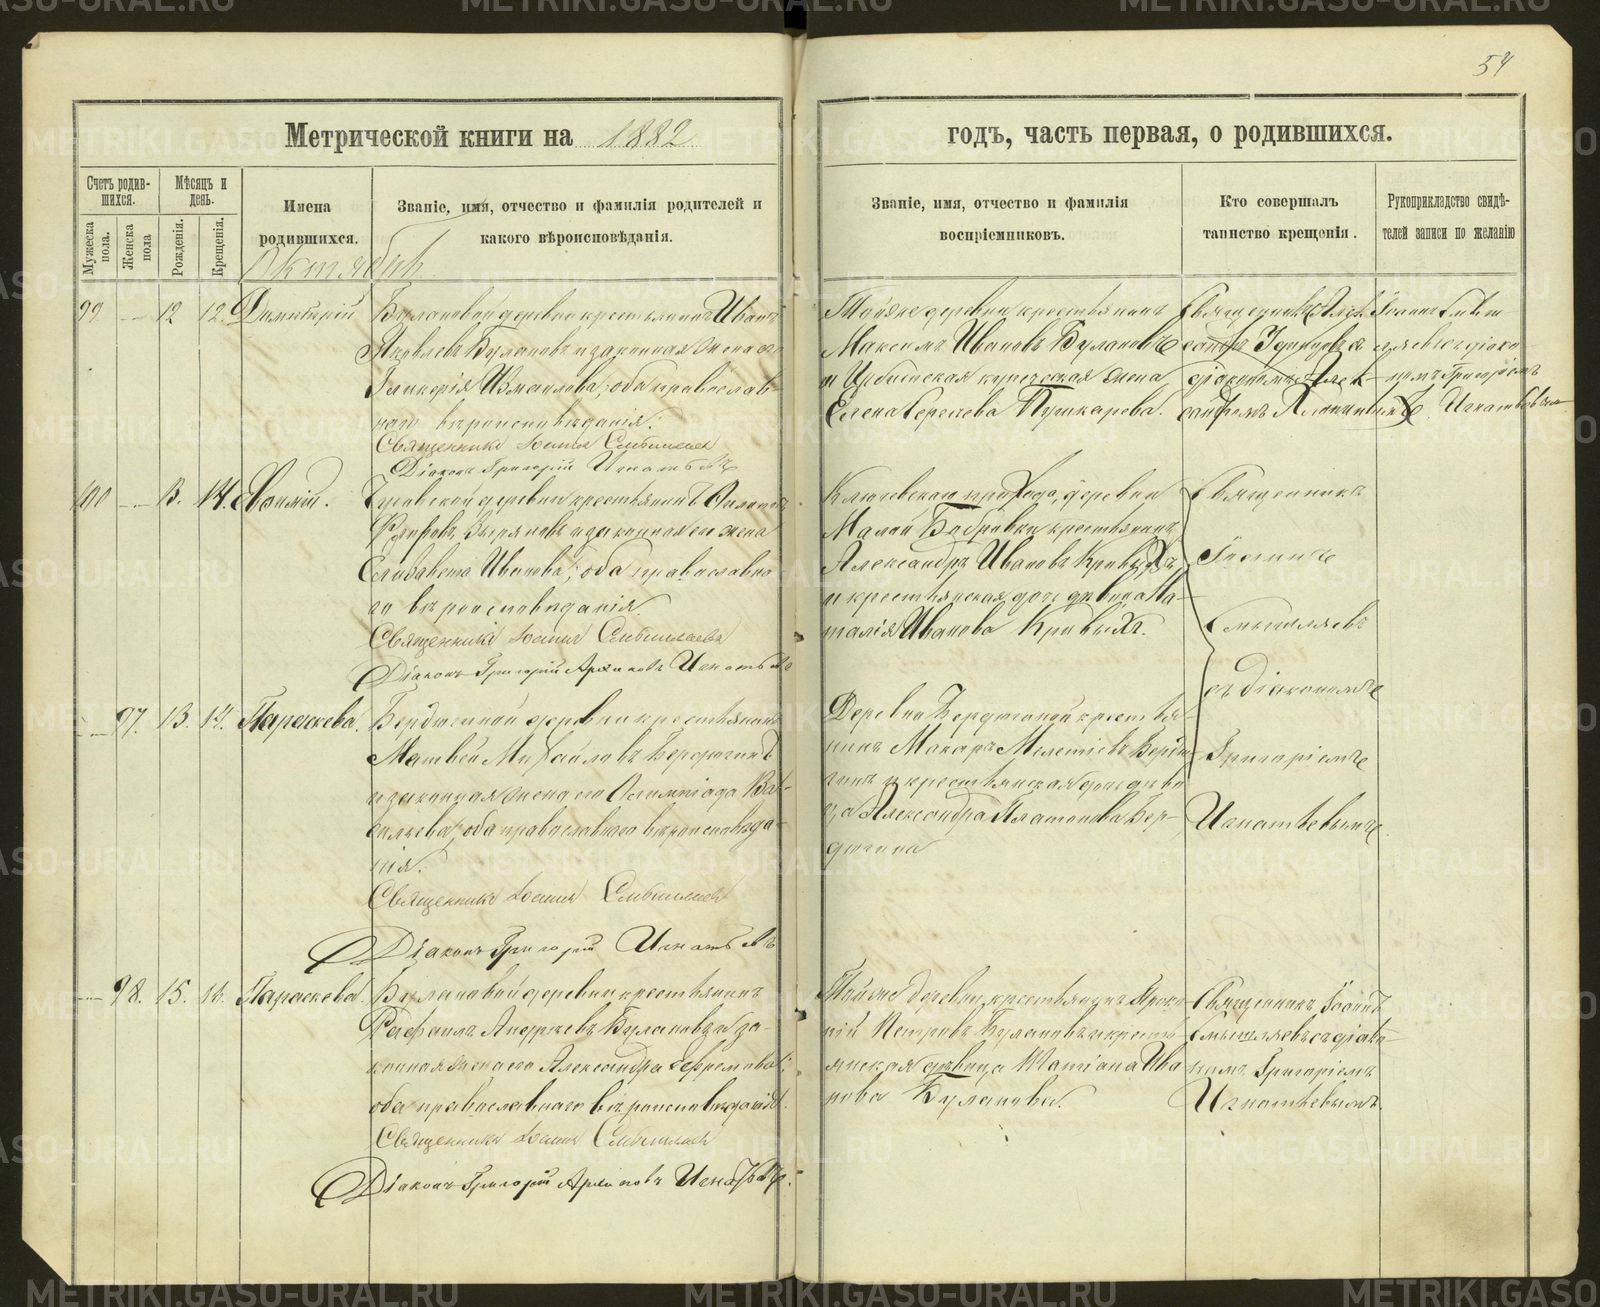 54
Метрической книги на 1882
годъ, часть первая, о родившихся.
Счетъ родив-
шихся.
Мѣсяцъ и
день.
Мужеска
пола.
Женска
пола
Рожденія.
Крещенія.
Имена
родившихся.
Званіе, имя, отчество и фамилія родителей и
какого вѣроисповѣданія.
Званіе, имя, отчество и фамилія
воспріемниковъ.
Кто совершалъ
таинство крещенія.
Рукоприкладство свидѣ-
телей записи по желанію
Октябрь
99 12 12 Димитрій
Булановой деревни крестьянинъ Иванъ
Яковлевъ Булановъ и законная жена его
Гликерія Измаилова; оба православ-
наго вѣроисповѣданія.
Священникъ Іоаннъ
Діаконъ Григорій Игнатьевъ
деревни крестьянинъ
Максимъ Ивановъ Булановъ
и Ирбитская купеческая жена
Елена Сергеева Пушкарева.
Священникъ
діакономъ
Іоаннъ
діако-
номъ Григоріемъ
Игнатьевымъ
100 13. 14.
деревни крестьянинъ
и законная его жена
Елизавета Иванова; оба православна-
го вѣроисповѣданія.
Священникъ Іоаннъ
Діаконъ Григорій Игнатьевъ
Ключевскаго прихода, деревни
Малой Бобровки крестьянинъ
Александръ Ивановъ Кривыхъ
и крестьянская дочь дѣвица На-
талія Иванова Кривыхъ.
Священникъ
Іоаннъ
Смышляевъ
съ діакономъ
Григоріемъ
Игнатьевымъ
97. 13. 14. Параскева.
Бердюгиной деревни крестьянинъ
Матвей Михайловъ Бердюгинъ
и законная жена его Олимпіада Ва-
сильева; оба православнаго вѣроисповѣда-
нія.
Священникъ Іоаннъ
Діаконъ Григорій Игнатьевъ
Деревни Бердюгиной крестья-
нинъ Макаръ Мелетіевъ Бердю-
гинъ и крестьянская дочь дѣви-
ца Александра Платонова Бер-
дюгина
98. 15. Параскева
Булановой деревни крестьянинъ
Рафаилъ Андреевъ Булановъ и за-
конная жена его Александра Ефремова;
оба православнаго вѣроисповѣданія.
Священникъ Іоаннъ
Діаконъ Григорій Игнатьевъ
Той же деревни крестьянинъ Проко-
пій Петровъ Булановъ и кресть-
янская дѣвица Татіана Ива-
нова Буланова.
Священникъ Іоаннъ
Смышляевъ съ діако-
номъ Григоріемъ
Игнатьевымъ.
METRIKI.GASO-URAL.RU